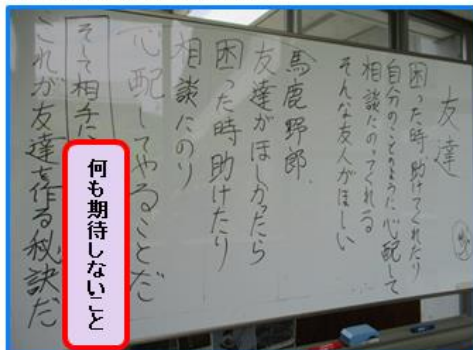 友達
困った時助けてくれたり
自分のことのように心配して
相談にのってくれる
そんな友人がほしい
馬鹿野郎、
友達がほしかったら
困った時助けたり
相談にのり
心配してやることだ
そして相手に
何も期待しないこと
これが友達を作る秘訣だ